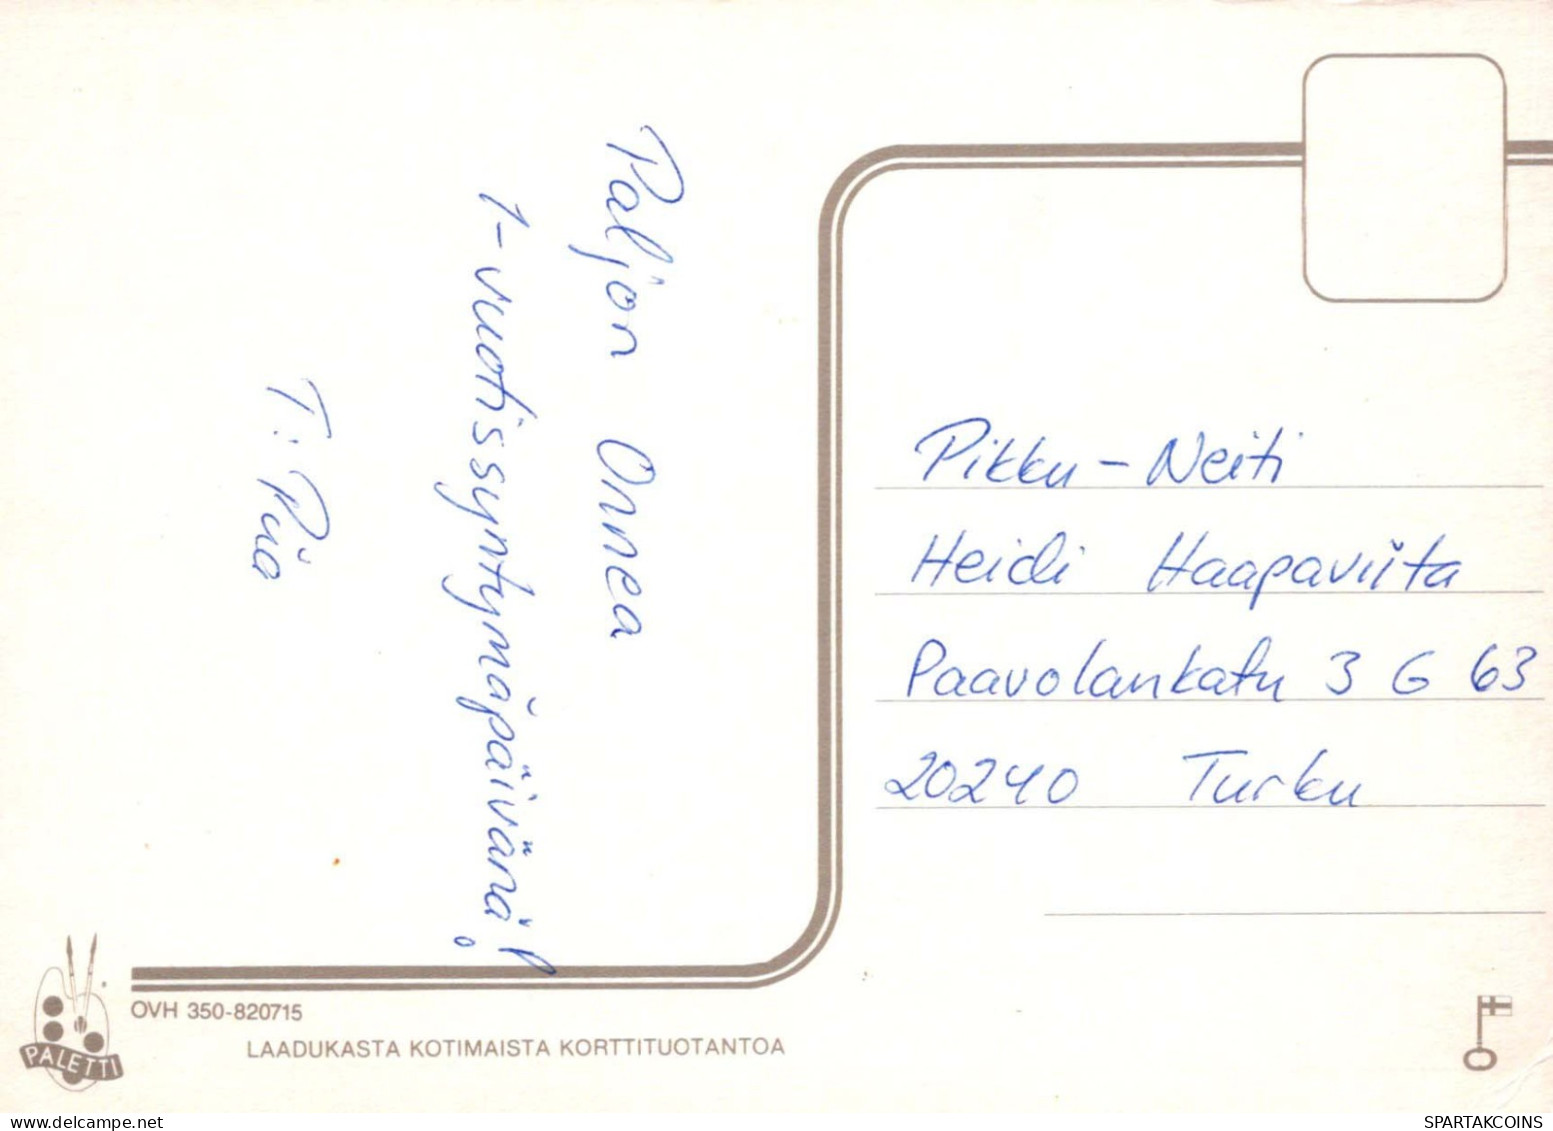 Paljon Onnea
1-vuotissyntymäpäivänä!
T: Piia
Pikku-Neiti
Heidi Haapaviita
Paavolankatu 3 G 63
20240 Turku
PALETTI
OVH 350-820715
LAADUKASTA KOTIMAISTA KORTTITUOTANTOA
delcampe.net
SPARTAKCOINS